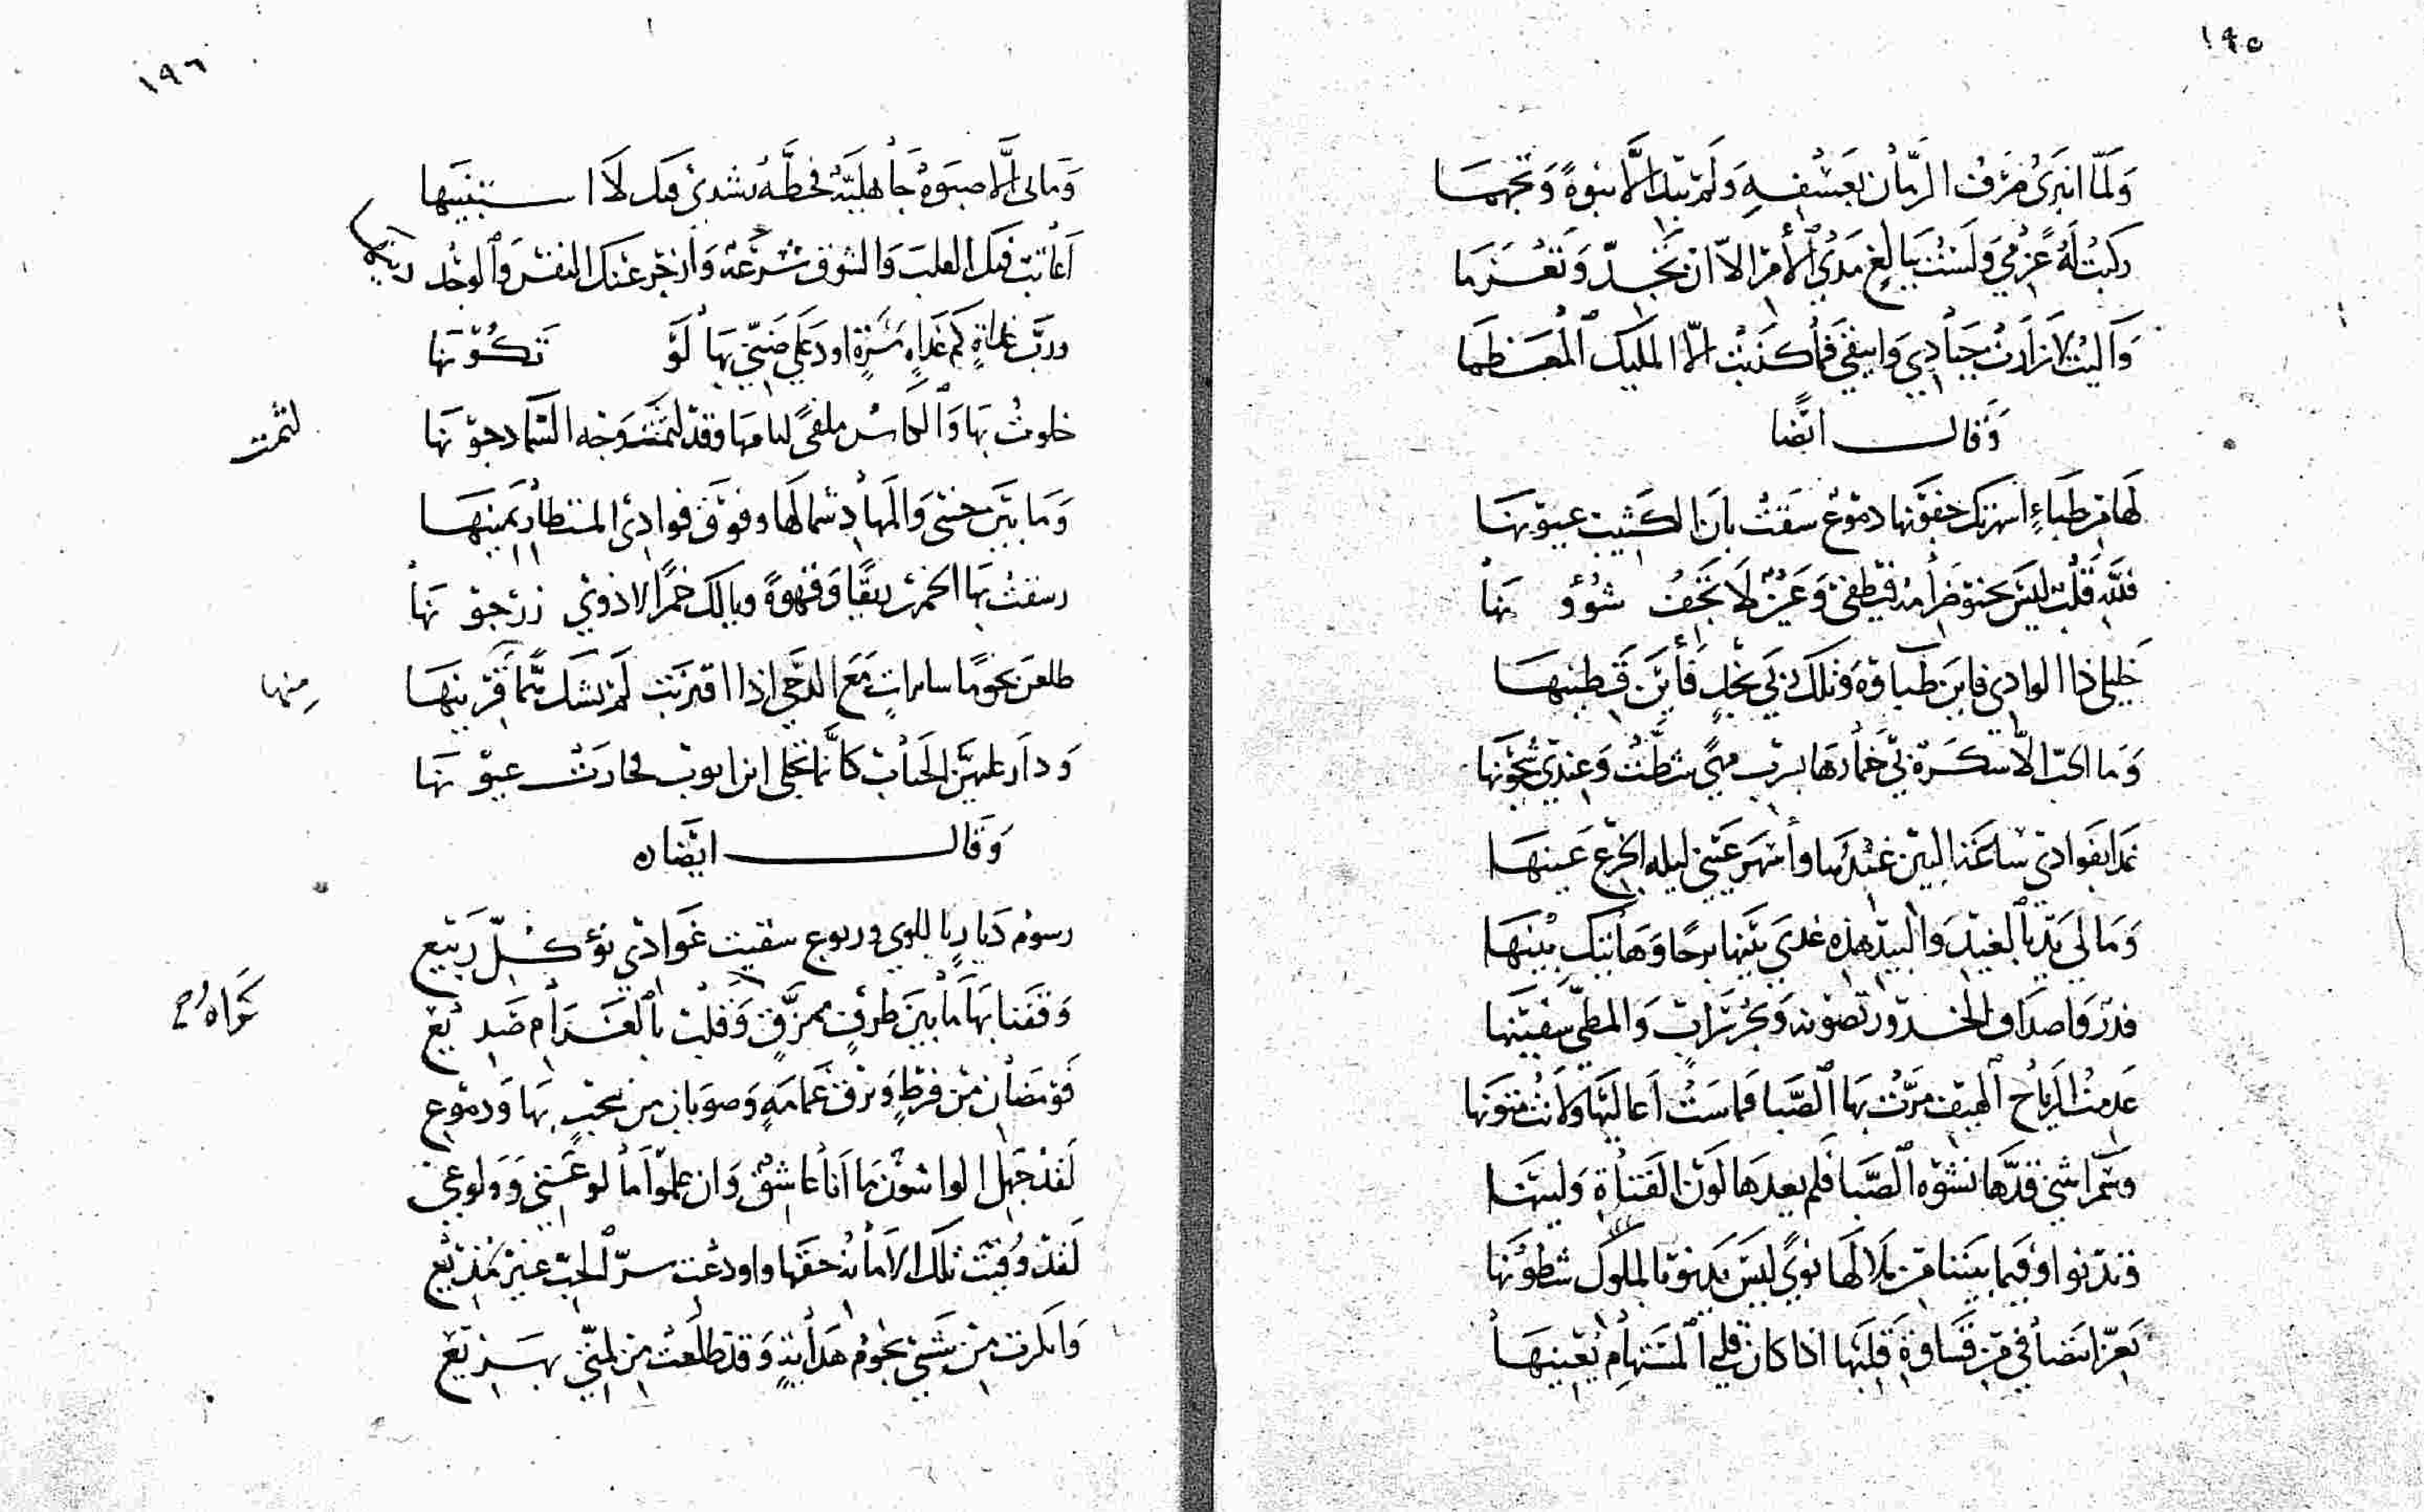 ١٩٥
وَلَمّا انبَرَى صَرْفُ الزّمَان بعَسْفِهِ وَلَمْ يبْدِ إلّا نبوةً وَتجهمَا
ركبْتُ لَهُ عزمِي وَلَسْتُ ببَالغٍ مَدَى الأَمْرِ الاّ انْ تجدّ وَتعْزمَا
وَآليْتُ لا زارتْ جيَادِي وَاينقي فمَا كنَبتْ الّا المَليكَ المُعَظمَا
وَقالـــ ايْضًا
لَهَا مِن ظبَاءِ اسهرتكَ جفونهَا دموعٌ سقتْ بانَ الكثيب عيونهَا
فللّهِ قَلْبٌ ليْسَ يخبو ضرامهُ فيُطْفى وَعَيْنٌ لَا تجفُ شُؤو نهَا
خَليلي ذا الوادِي فاينَ ظبَاؤهُ وَتلك رُبَى نجْدٍ فَأينَ قَطينهَا
وَمَا الحبّ الّا سكرة بي خُمارهَا بسربِ مهًى شطّتْ وَعندِي شجونهَا
غدَا بفوادي سَاعَة البين غيْدُهَا وأسْهَرَ عَيْني ليلة الجزع عَينهَا
وَمَا لي يَدٌ بالغيد وَالبيد هذِهِ غدَى بيْنها برحًا وَهَاتيكَ بيْنهَا
فدرّ وَاصدَاف الخدور تصونه وَبحْر سَرابٍ وَالمطيّ سفينهَا
عَدِمتُ الرياحَ الهيف مرّتْ بهَا الصَّبا فمَاسَتْ أعاليهَا ولانتْ متونهَا
وسُمْرًا ثنى قدّهَا نشوة الصَّبا فلم يعدهَا لَوْن القَنَاةِ وَلينهَا
وَتدْنوا وفيما بيْننا مِنْ مَلالهَا نوًى ليْسَ يَدنو بالملُول شطونهَا
بَعزّ انتصَافي مِن قسَاوَة قلبهَا اذا كانَ قلبي المُسْتهَام يُعينهَا
١٩٦
وَمَا لي إلّا صبوةٌ جَاهليّة فخطّة رُشدي فيك لَا استبينهَا
أعاتبُ فيك القلبَ وَالشوق شرعهُ وَأزجر عنك النفسَ وَالوجْد دينهَا
وربّ غدَاةٍ كم غَدَاةِ مَسَرّةٍ اود عَلى ضَنّي بهَا لَوْ تَكُوْ نهَا
خلوتُ بهَا وَالكَاسُ ملقىً لثامهَا وقدْ لثمَتْ وَجْه السّمَا دجوْ نهَا
لثمت
وَمَا بيْنَ خدّى وَالمهَادِ شمالهَا وفوْقَ فوادِى المستطَار يَمينهَا
رشفتُ بهَا الخمريْن ريقًا وَقهوَةً ويالك خمرًا لا ذوى زرجو نهَا
طلعنَ نجومًا سايراتٍ مَعَ الدّجى اذا اقترَنت لَمْ تَشك ممّا قرينهَا
مِنها
وَدارَ عليهنّ الحبَاب كأنّمَا تجلى ابن ايوب فحارَتْ عيو نهَا
وَقالـــ ايضًا
رسومُ دَيَارٍ باللوى وربوع سقيت غوادي نوْءِ كلّ رَبيع
وَقفنَا بهَا مَا بيْنَ طرْفٍ ممزّقٍ وَقلبٍ بالغَرَام صَديع
فوْمضَانِ مِنْ فرْطٍ وَبرْق غمَامَةٍ وَصوبان من سحْبٍ بهَا وَدموع
لَقدْ جَهلَ الواشونَ مَا أنا عاشقٌ وَان علموْا مَا لوعَتِي وَوَلوعِي
لَقدْ وُفيَتْ تلكَ الامَانة حقهَا واودعْت سرّ الحبّ غيْرَ مُذيْع
وَانكرت منْ شيْبي نجُومُ هدَايةٍ وَقدْ طلعَتْ مِن لمّتي بهَزيع